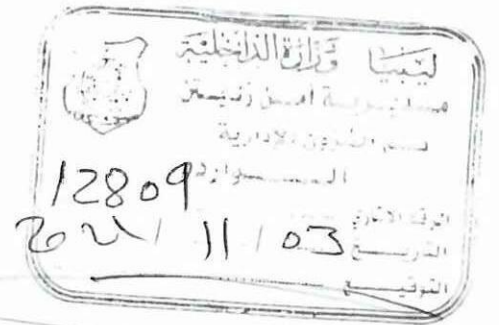 ليبيا وزارة الداخلية
مديرية أمن زليتن
قسم الشؤون الإدارية
الــــوارد
12809
الرقم الإشاري
التاريخ 03 / 11 /
التوقيع